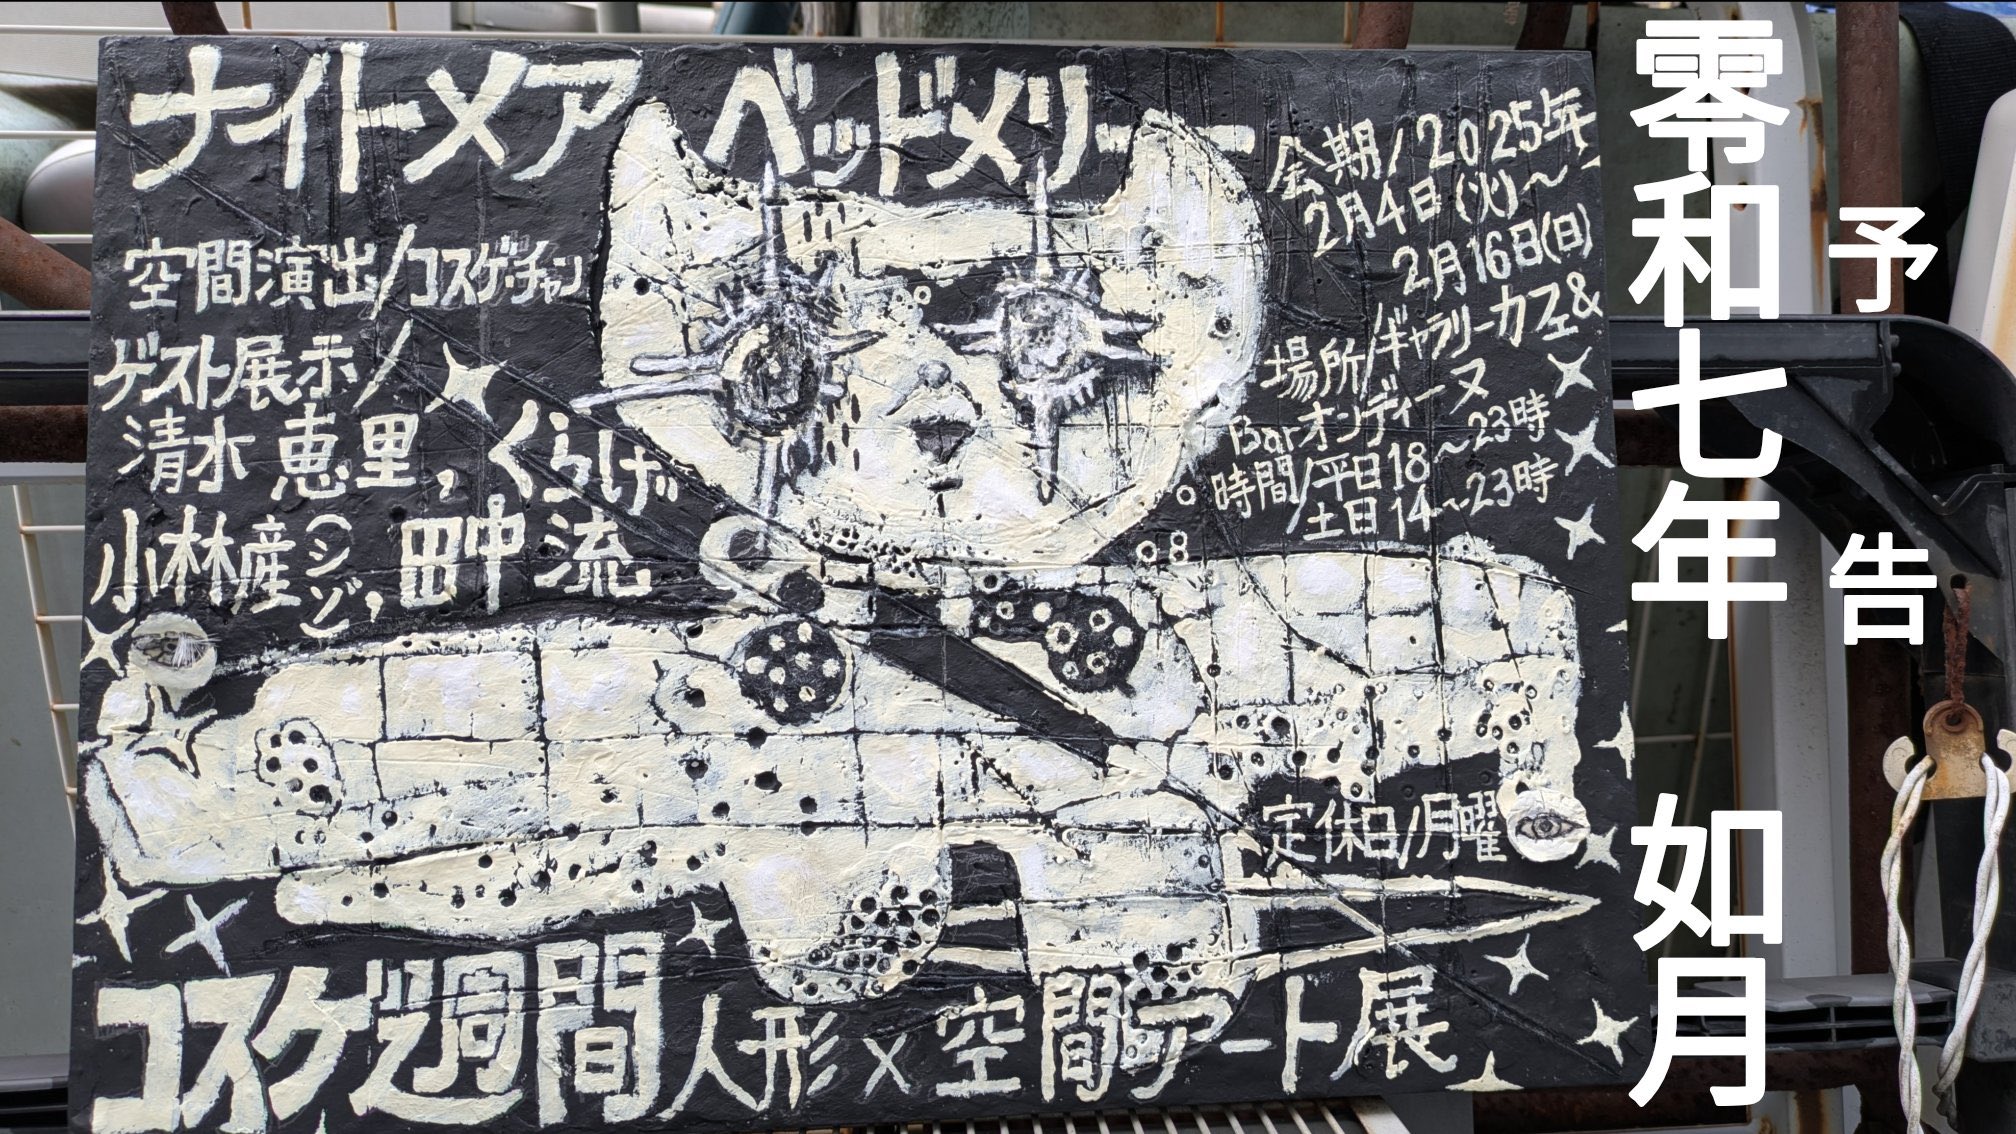 ナイトメア ベッドメリー
空間演出/コスゲ・チャン
ゲスト展示/
清水 恵里, くらげ
小林産(シゾ), 田中 流
会期/2025年
2月4日(火)〜
2月16日(日)
場所/ギャラリーカフェ&
Barオンディーヌ
時間/平日18〜23時
土日14〜23時
定休日/月曜
コスゲ週間 人形×空間アート展
予告
零和七年 如月